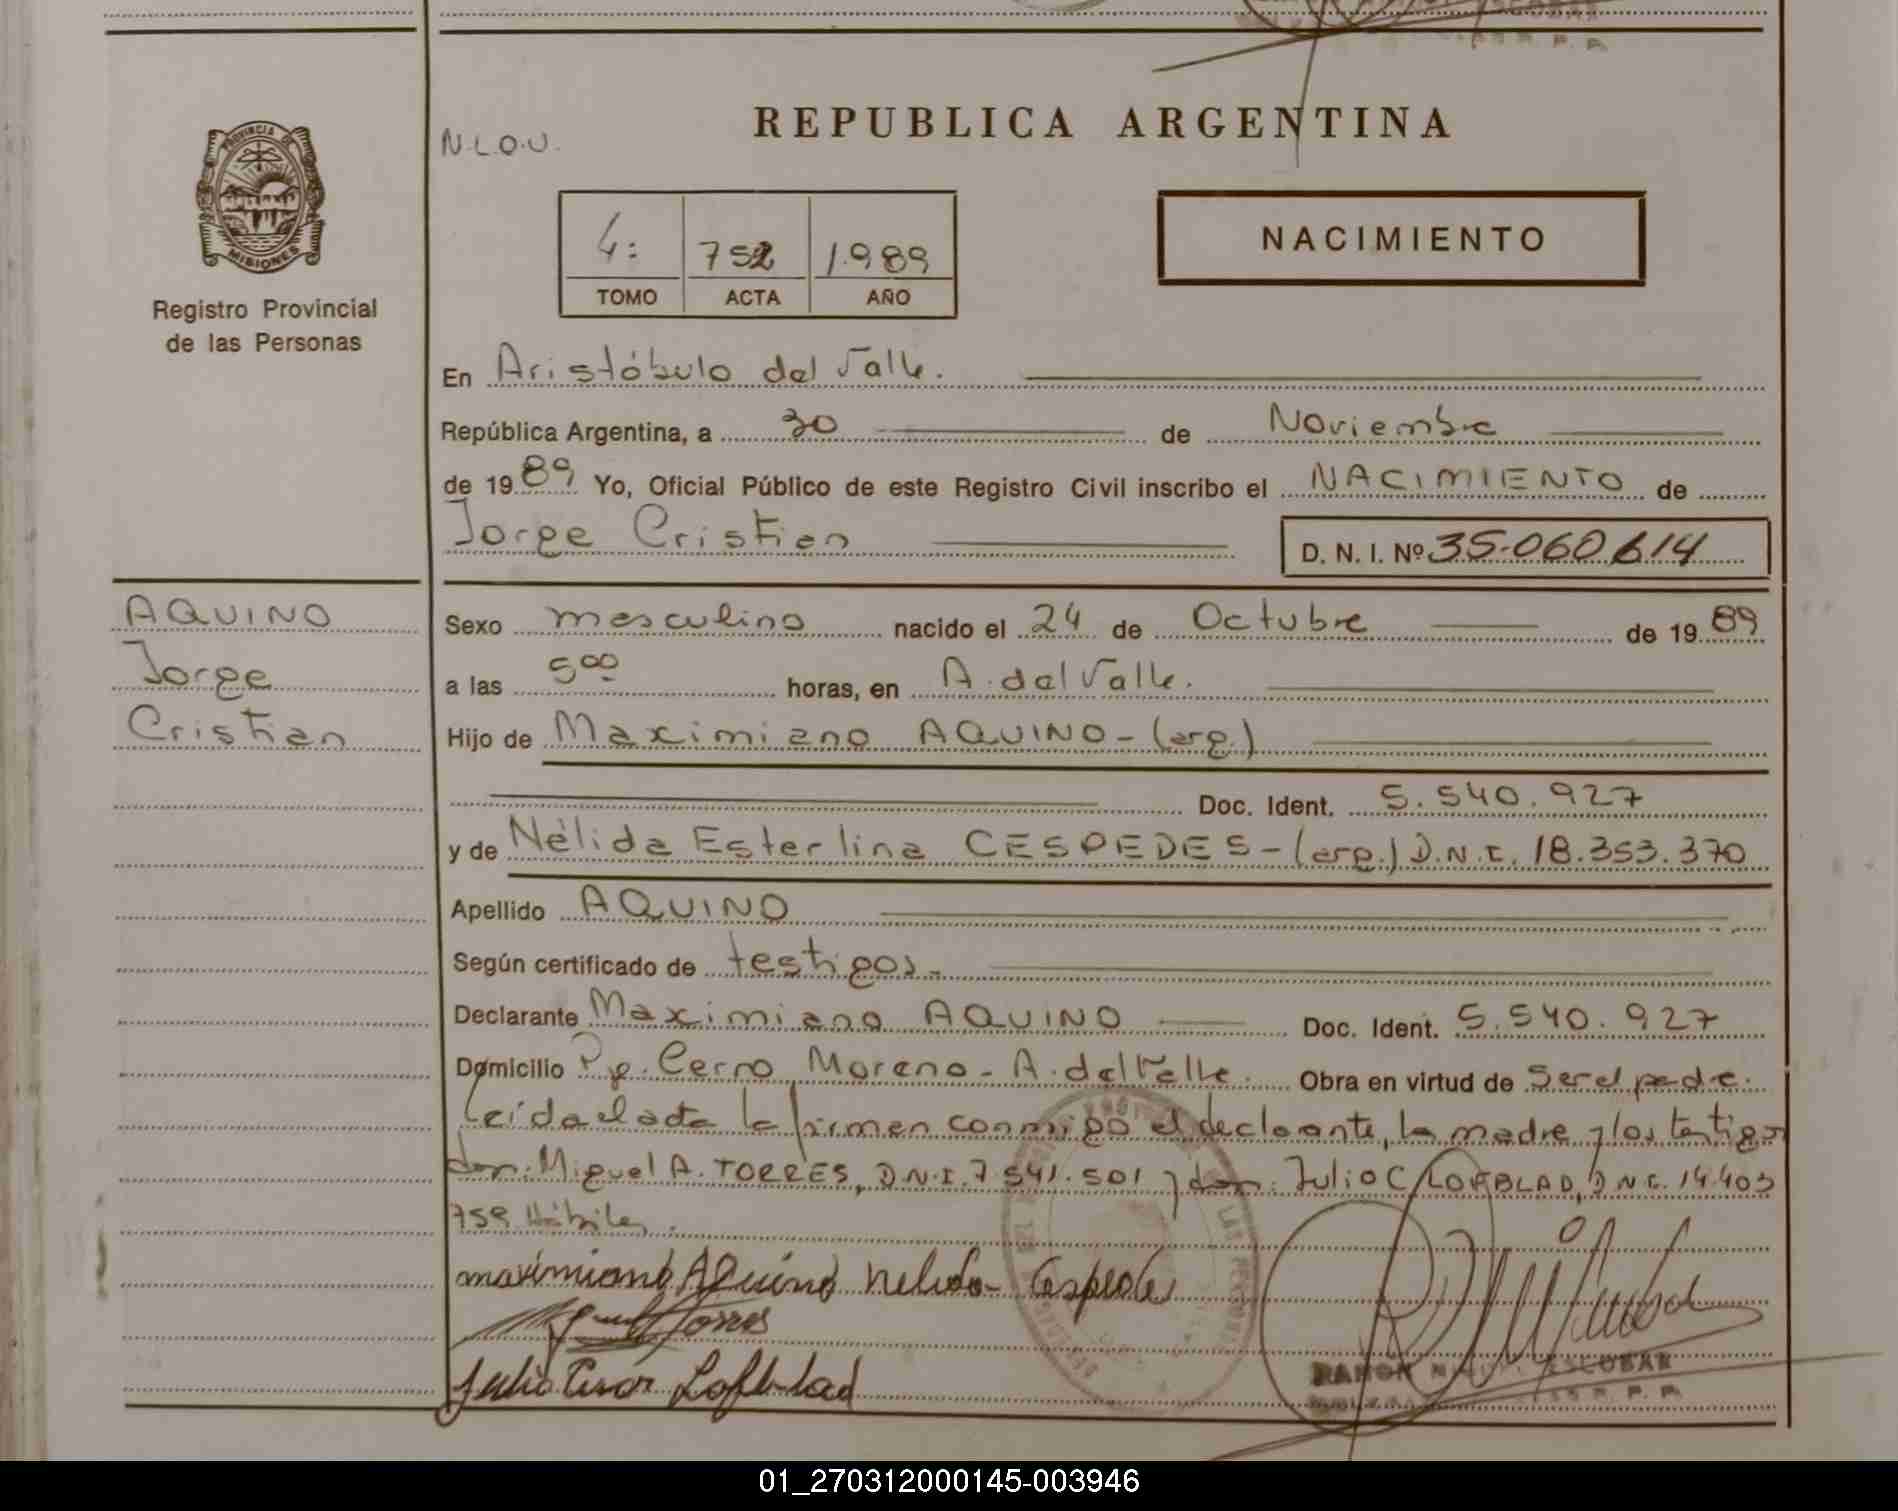 REPUBLICA ARGENTINA
N.L.O.U.
PROVINCIA DE
MISIONES
Registro Provincial
de las Personas
4: 752 1.989
TOMO ACTA AÑO
NACIMIENTO
En Aristóbulo del Valle.
República Argentina, a 30 de Noviembre
de 1989 Yo, Oficial Público de este Registro Civil inscribo el NACIMIENTO de
Jorge Cristian D. N. I. Nº 35.060.614
AQUINO
Jorge
Cristian
Sexo masculino nacido el 24 de Octubre de 1989
a las 5 00 horas, en A. del Valle.
Hijo de Maximiano AQUINO - (arg.)
Doc. Ident. 5.540.927
y de Nélida Esterlina CESPEDES - (arg.) D.N.I. 18.353.370
Apellido AQUINO
Según certificado de testigos.
Declarante Maximiano AQUINO Doc. Ident. 5.540.927
Domicilio Pje. Cerro Moreno - A. del Valle. Obra en virtud de ser el padre.
Leída el acta la firman conmigo el declarante, la madre y los testigos
don: Miguel A. TORRES, D.N.I. 7.541.501 y don: Julio C. LOFBLAD, D.N.I. 14.403
759 Hábiles.
maximiano Aquino Nelida Cespede
Torres
Julio Cesar Lofblad
RAMON ESCOBAR
01_270312000145-003946